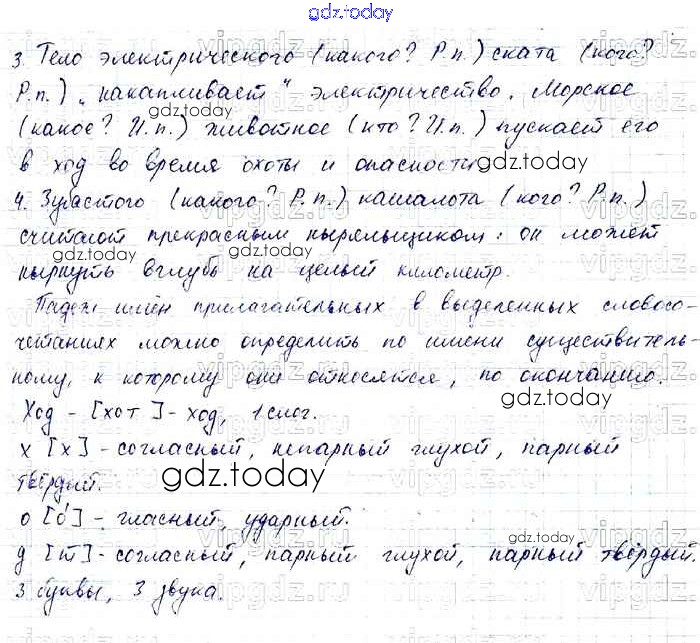 gdz.today
3. Тело электрического (какого? Р.п.) ската (кого?
Р.п.) „накапливает" электричество. Морское
(какое? И.п.) животное (кто? И.п.) пускает его
в ход во время охоты и опасности.
4. Зубастого (какого? Р.п.) кашалота (кого? Р.п.)
считают прекрасным ныряльщиком: он может
нырнуть вглубь на целый километр.
Падеж имён прилагательных в выделенных словосо-
четаниях можно определить по имени существитель-
ному, к которому они относятся, по окончанию.
Ход - [хот] - ход, 1 слог.
х [х] - согласный, непарный глухой, парный
твёрдый.
о [о́] - гласный, ударный.
д [т] - согласный, парный глухой, парный твёрдый.
3 буквы, 3 звука.